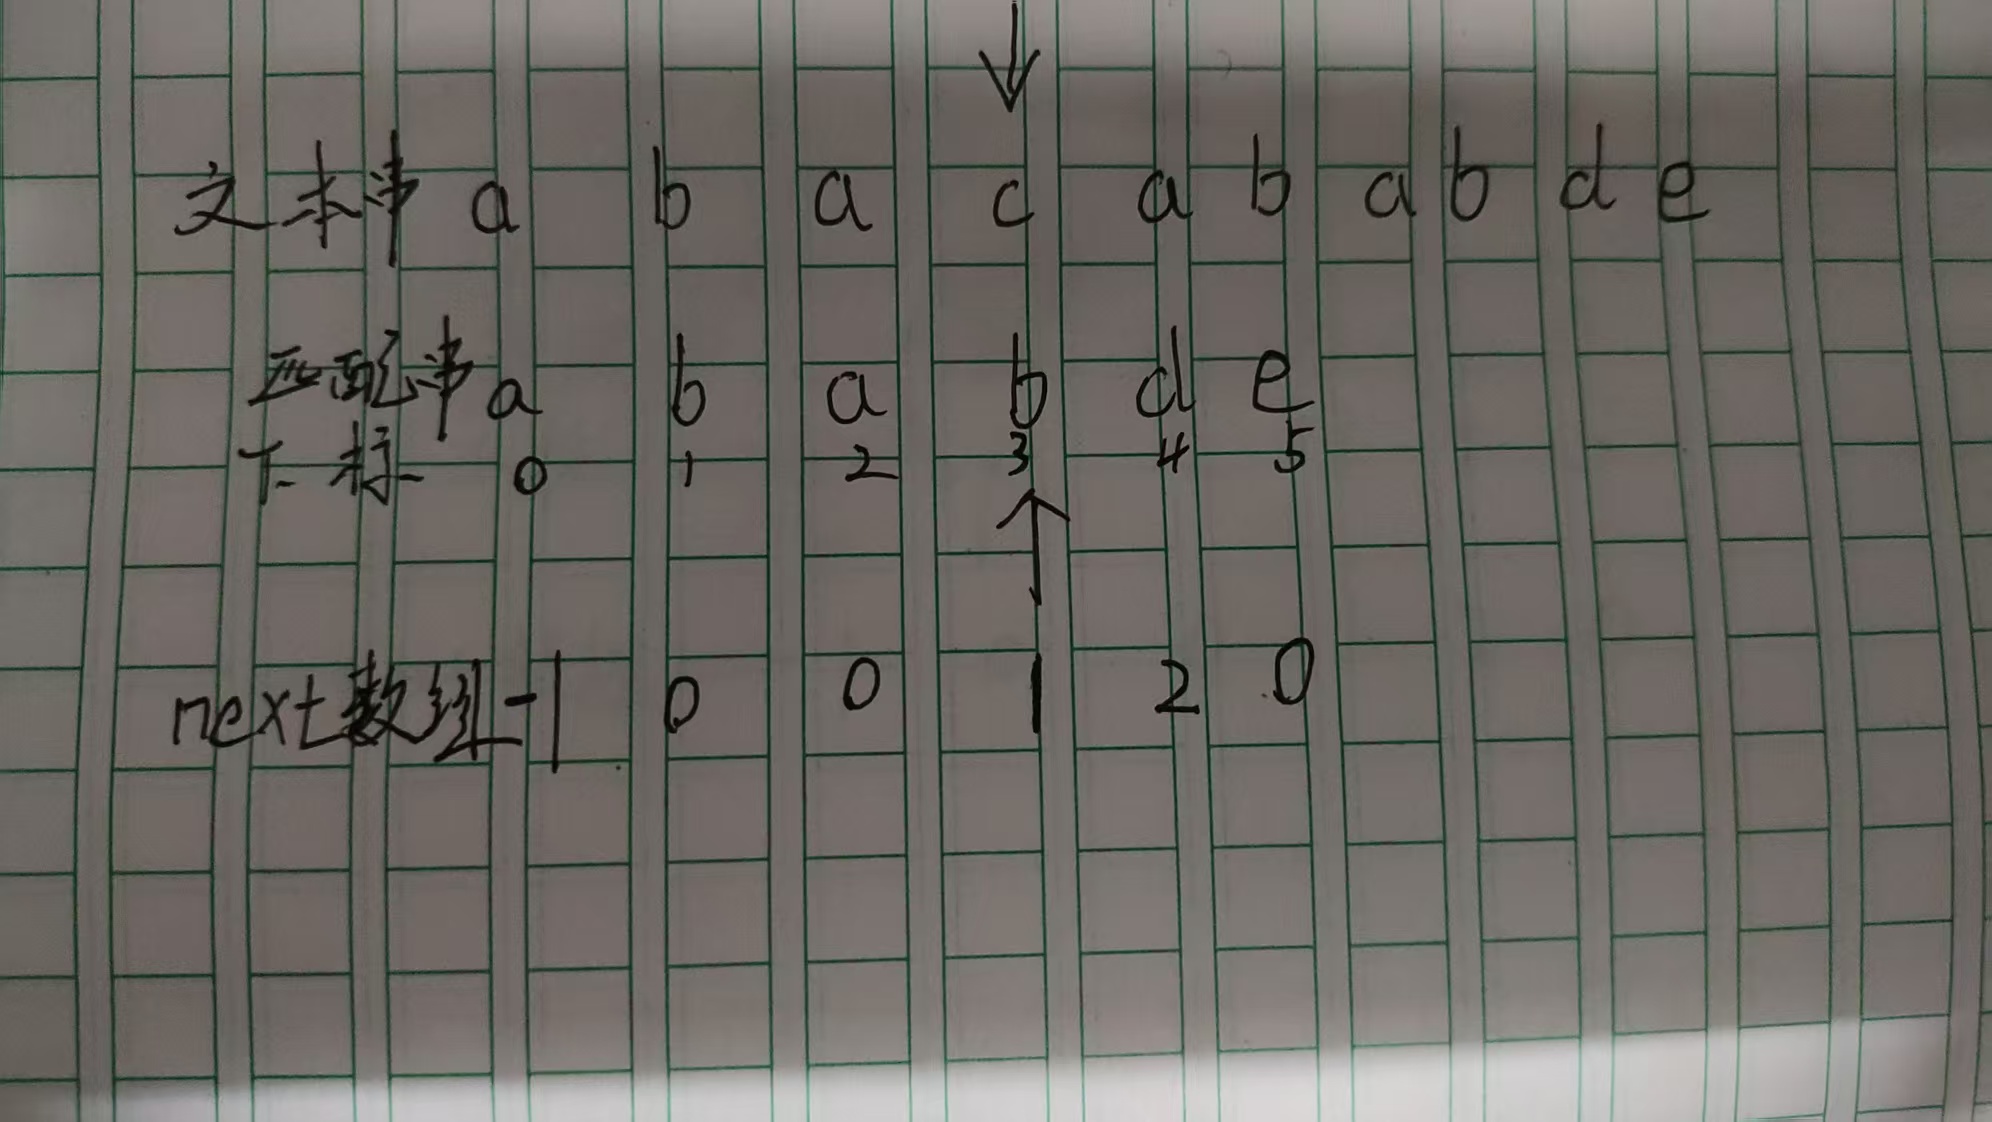 文本串 a b a c a b a b d e
匹配串 a b a b d e
下标 0 1 2 3 4 5
next数组 -1 0 0 1 2 0